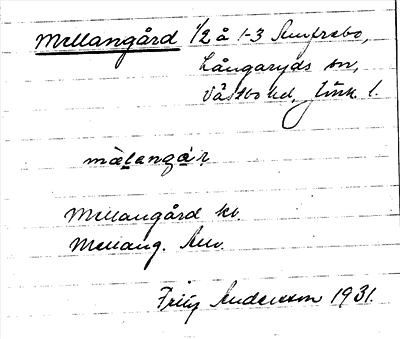 Mellangård 1/2 å 1-3 Stenfrebo,
Långaryds sn,
Västbo hd, Jönk. l.
mælangár
Mellangård kv.
Mellang. Anv.
Fritz Andersson 1931.